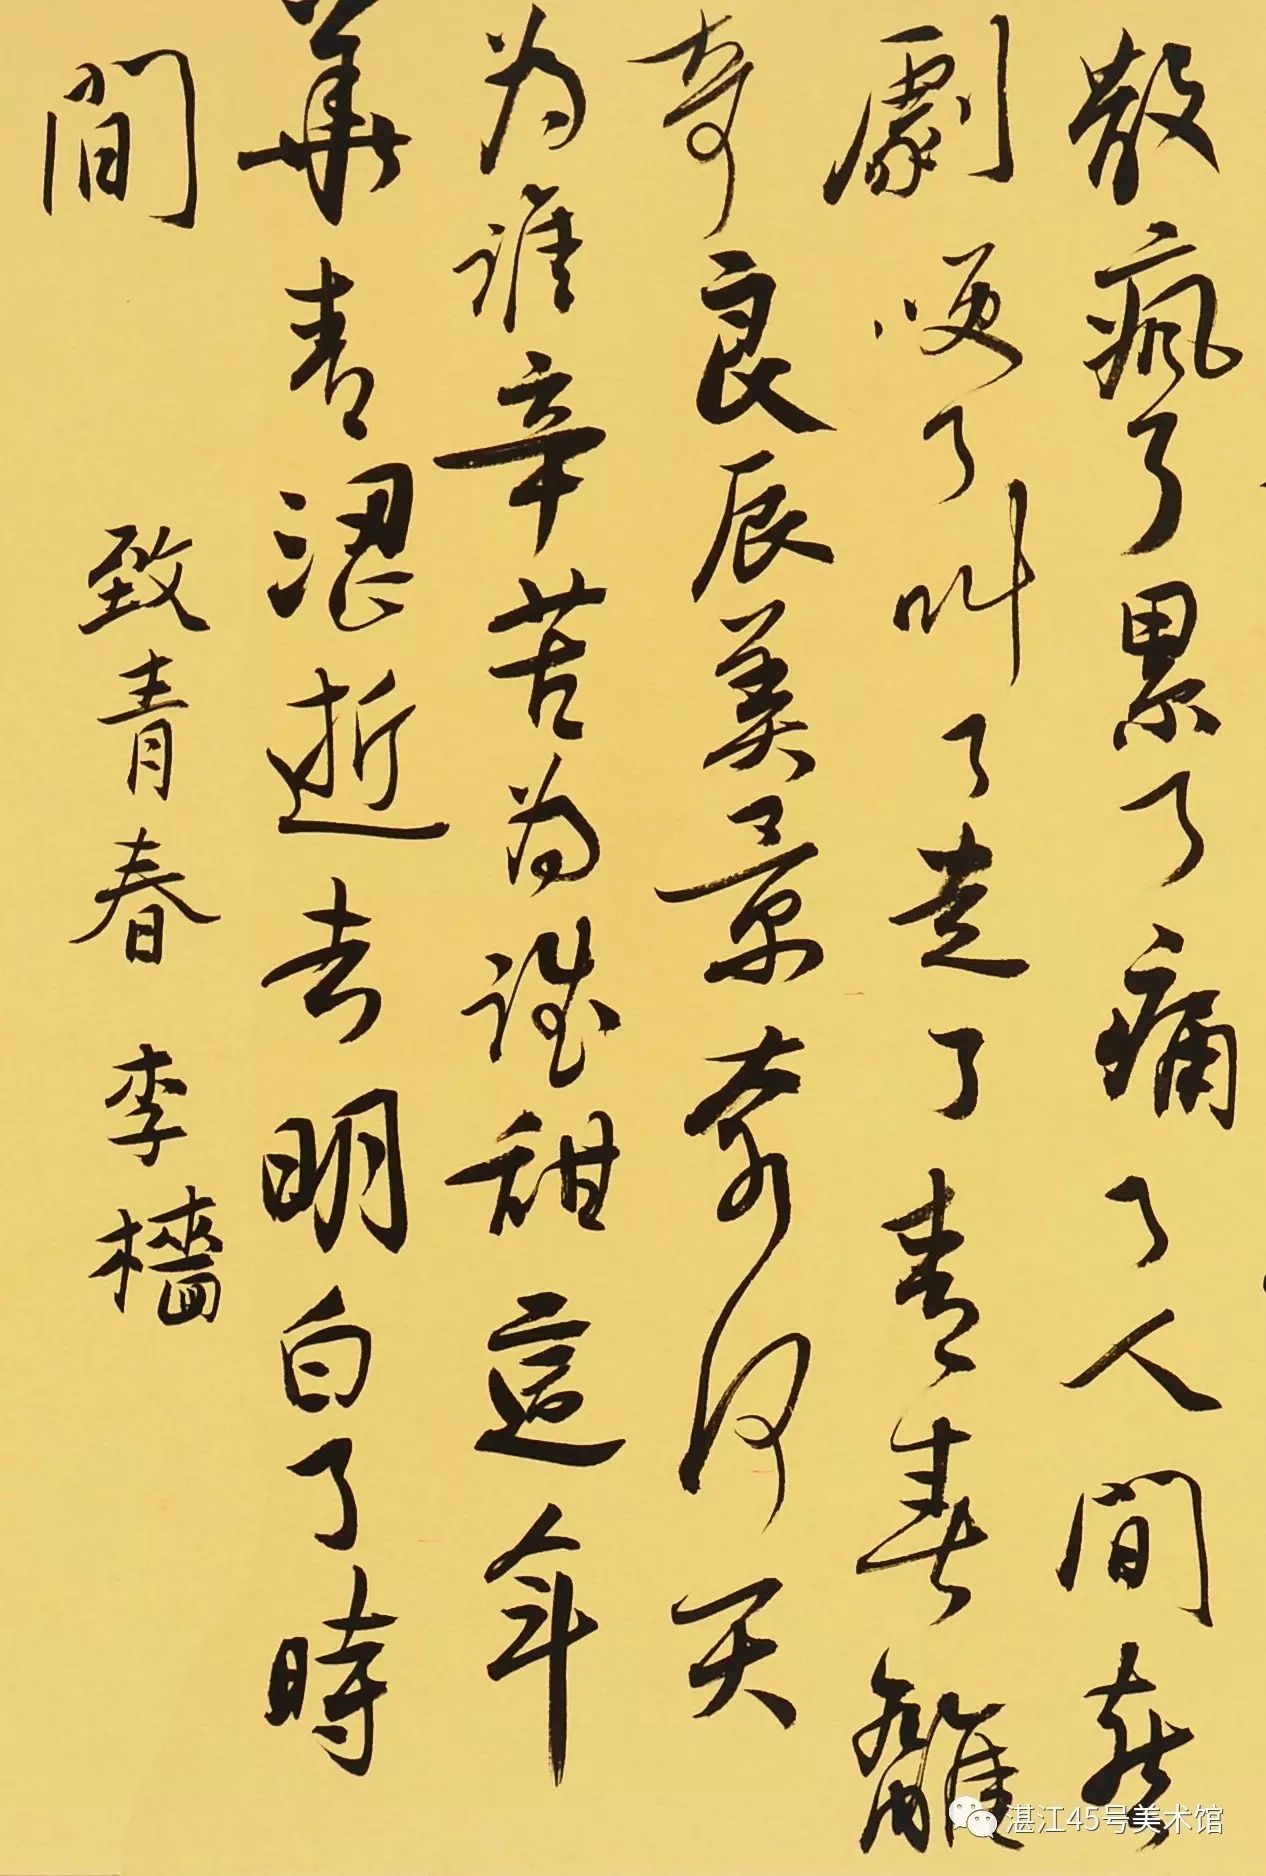 散疯了累了痛了人間喜
劇哽了叫了走了青春離
奇良辰美景奈何天
为誰辛苦为誰甜這年
華青澀逝去明白了時
間
致青春 李檣
湛江45号美术馆